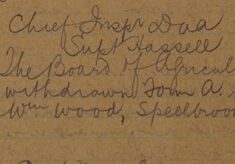 Chief Inspr Daa
Supt Hassell
The Board of Agricul
withdrawn Form A.
Wm Wood, Speelbroo